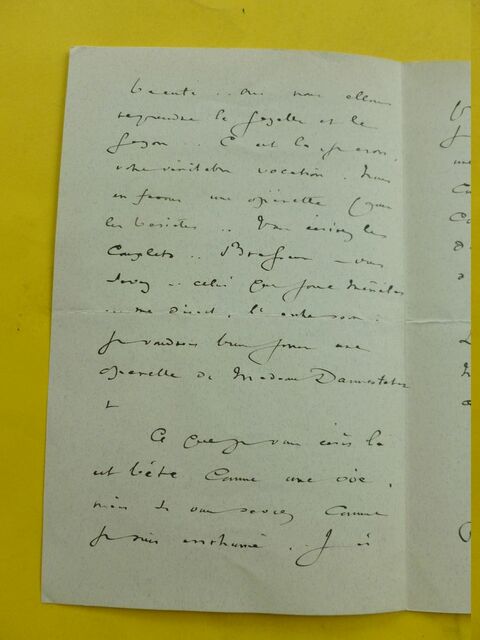 beauté .. ou nous allons
reprendre la Gazelle et le
.. C'est là, je crois,
votre véritable vocation. Nous
en ferons une opérette (que
les .. Vous écrirez les
Couplets .. Brasseur — vous
savez .. celui qui joue Ménélas
... me disait, l'autre soir :
je voudrais bien jouer une
opérette de Madame Dannestetter
Ce que je vous écris là
est bête comme une oie,
mais si vous saviez comme
je suis enrhumé. J'ai